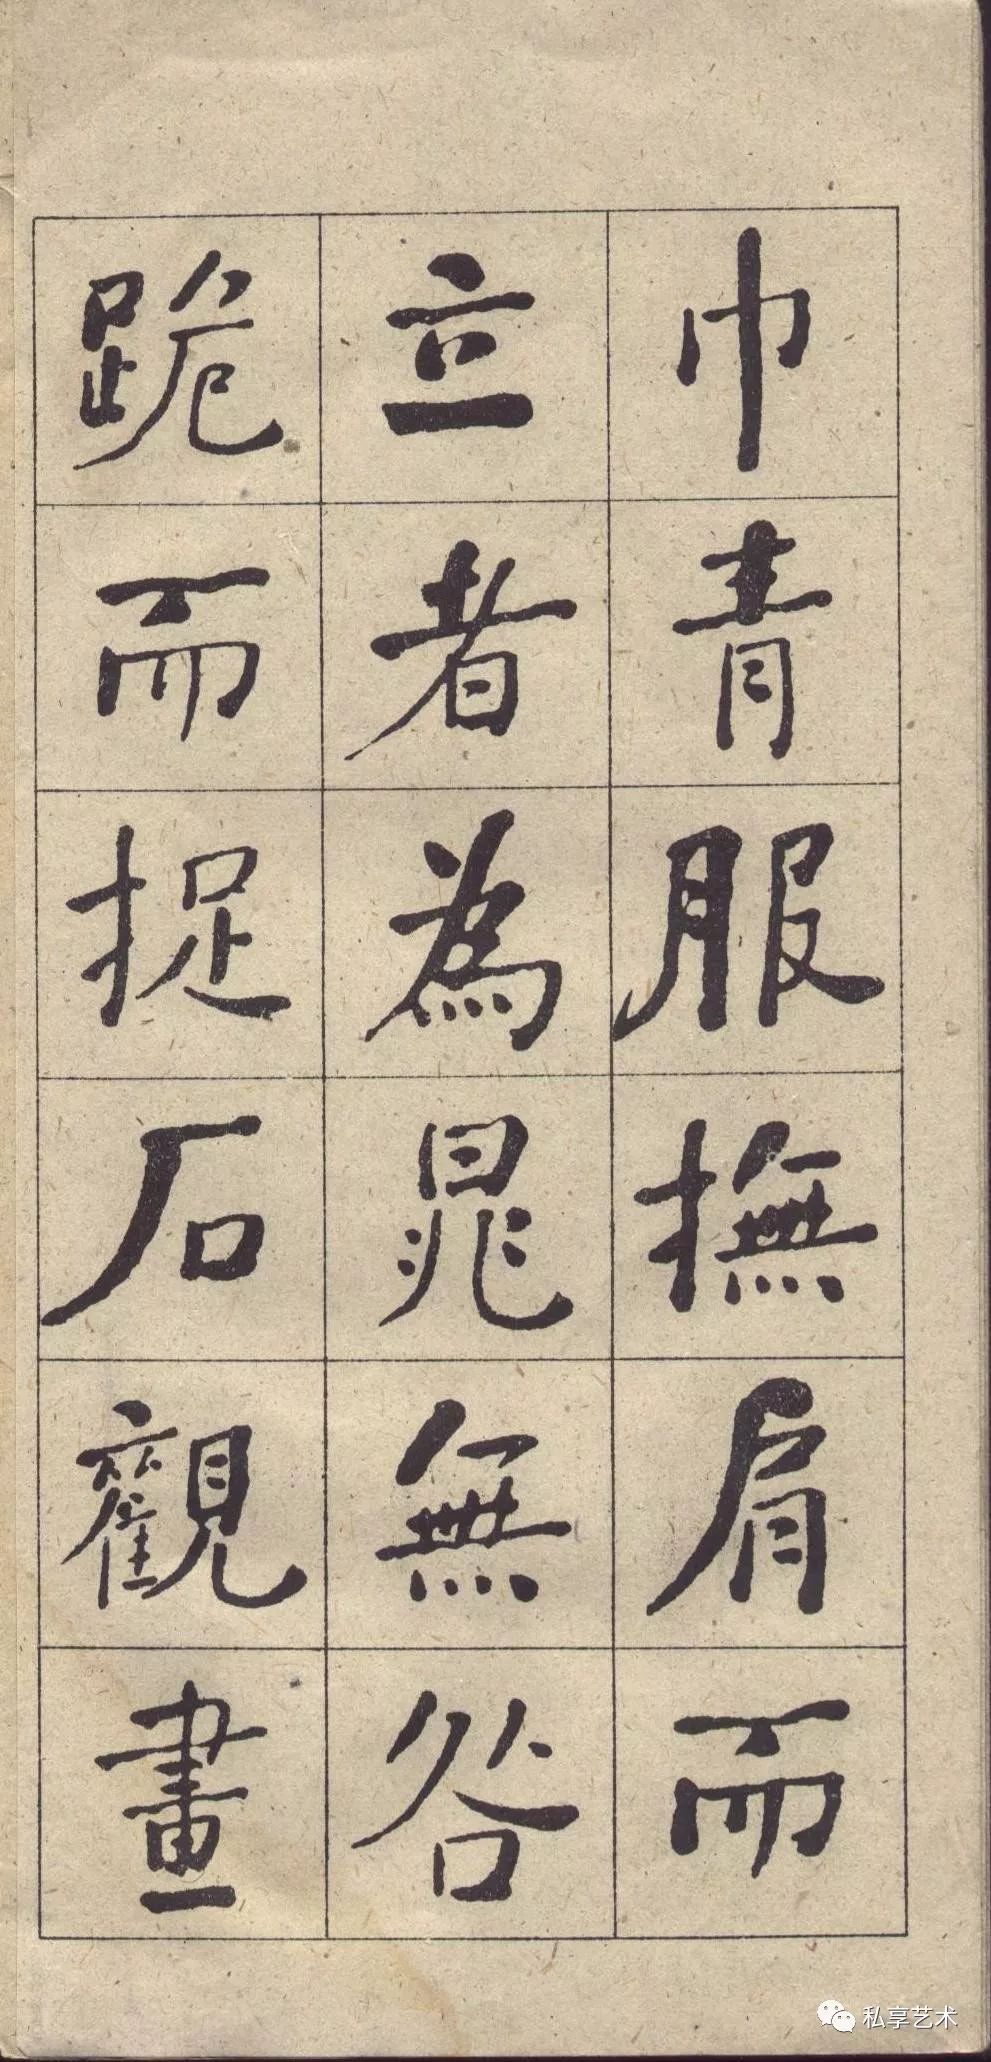 巾青服撫肩而
立者為晁無咎
跪而捉石觀畫
私享艺术